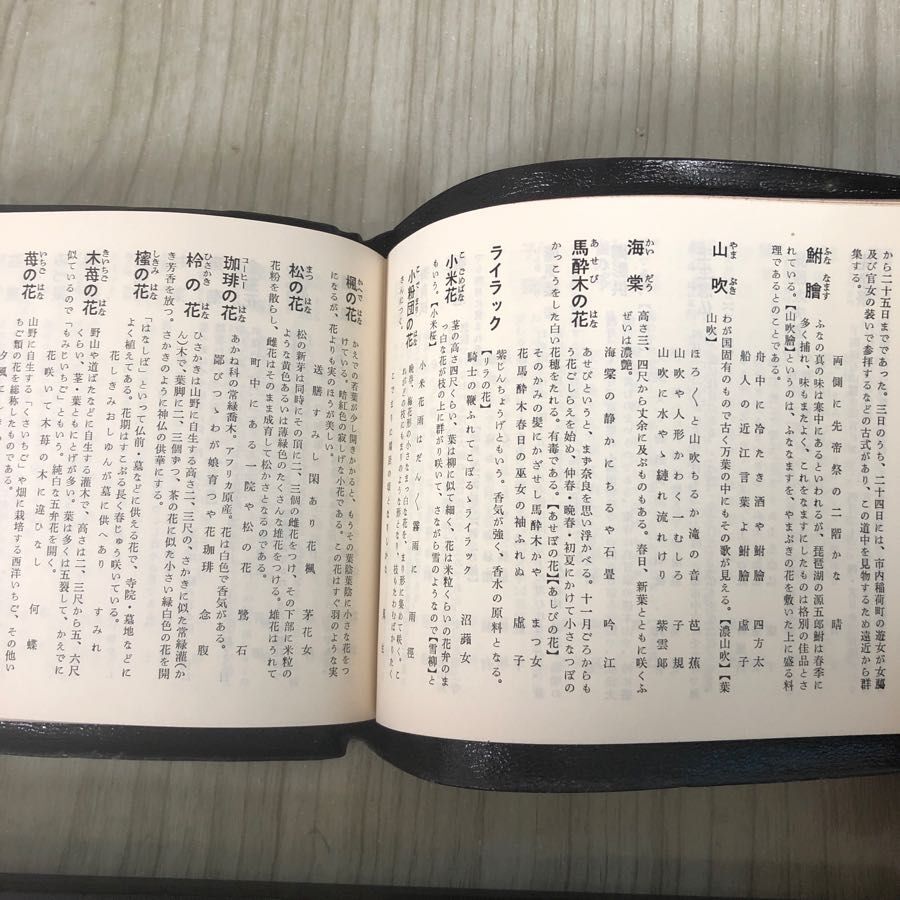 から二十五日まであった。三日のうち、二十四日には、市内稲荷町の遊女が女﨟
及び官女の装いで参拝するなどの古式があり、この道中を見物するため遠近から群
集する。
両側に先帝祭の二階かな 晴
鮒膾 ふななます
ふなの真の味は寒中にあるといわれるが、琵琶湖の源五郎鮒は春季に
多く捕れ、味もまたよく、これをなますにしたものは格別の佳品とさ
れている。【山吹膾】というのは、ふななますを、やまぶきの花を敷いた上に盛る料
理であるとのことである。
舟中に冷たき酒や鮒膾 四方太
船人の近江言葉よ鮒膾 虚子
山吹 やまぶき
わが国固有のもので古く万葉の中にもその歌が見える。【濃山吹】【葉
山吹】
ほろ〱と山吹ちるか滝の音 芭蕉
山吹や人形かわく一むしろ 子規
山吹に水や縺れ流れけり 紫雲郎
海棠 かいだう
高さ三、四尺から丈余に及ぶものもある。春日、新葉とともに咲くふ
ぜいは濃艶。
海棠の静かにちるや石畳 吟江
馬酔木の花 あせびのはな
あせびというと、まず奈良を思い浮かべる。十一月ごろからも
う花ごしらえを始め、仲春・晩春・初夏にかけて小さなつぼの
かっこうをした白い花穂をたれる。有毒である。【あせぼの花】【あしびの花】
そのかみの髪にかざせし馬酔木かや まつ女
花馬酔木春日の巫女の袖ふれぬ 虚子
ライラック
紫じんちょうげともいう。香気が強く、香水の原料となる。
【リラの花】
騎士の鞭ふれてこぼるゝライラック 沼蘋女
小米花 こごめばな
茎の高さ四尺くらい、葉は柳に似て細く、花は米粒くらいの花弁のま
っ白な花が一めんに枝の上に群がり咲いて、さながら雪のようなので【雪柳】と
もいう。【小米桜】
小米花雨はだん〱霧雨に 雨徑
小粉団の花
楓の花 かへでのはな
かえでの若葉が少し開きかかると、もうその葉陰葉陰に小さな花をつ
けている。暗紅色の寂しげな小花である。これはすぐ羽のような実
になるが、花よりも実のほうが美しい。
送膳すみし閑あり花楓 茅花女
松の花 まつのはな
松の新芽は同時にその頂に二、三個の雌花をつけ、その下部に米粒の
ような黄色あるいは薄緑色のたくさんな雄花をつける。雄花はうれて
花粉を散らし、雌花はそのまま成育して松かさとなるのである。
町中にある一院や松の花 鷺石
珈琲の花 コーヒーのはな
あかね科の常緑喬木。アフリカ原産。花は白色で香気がある。
鄙びつゝわが娘育つや花珈琲 念腹
柃の花 ひさかきのはな
ひさかきは山野に自生する高さ二、三尺の、さかきに似た常緑灌(か
ん)木で、葉脚に二、三個ずつ、茶の花に似た小さい緑白色の花を開
き芳香を放つ。さかきのように神仏の供華にする。
樒の花 しきみのはな
「はなしば」といって仏前・墓などに供える花で、寺院・墓地などに
よく植えてある。花期はすこぶる長く春じゅう咲いている。
花しきみおしゆんが墓に供へあり すみれ
木苺の花 きいちごのはな
野山や道ばたなどに自生する灌木で、高さは二、三尺から五、六尺
くらい、茎・葉ともにとげが多い。葉は多くは五裂して、かえでに
似ているので「もみじいちご」ともいう。純白な五弁花を開く。
花咲いて木苺の木に違ひなし 何蝶
苺の花 いちごのはな
山野に自生する「くさいちご」や畑に栽培する西洋いちご、その他い
ちご類の花を総称したもの